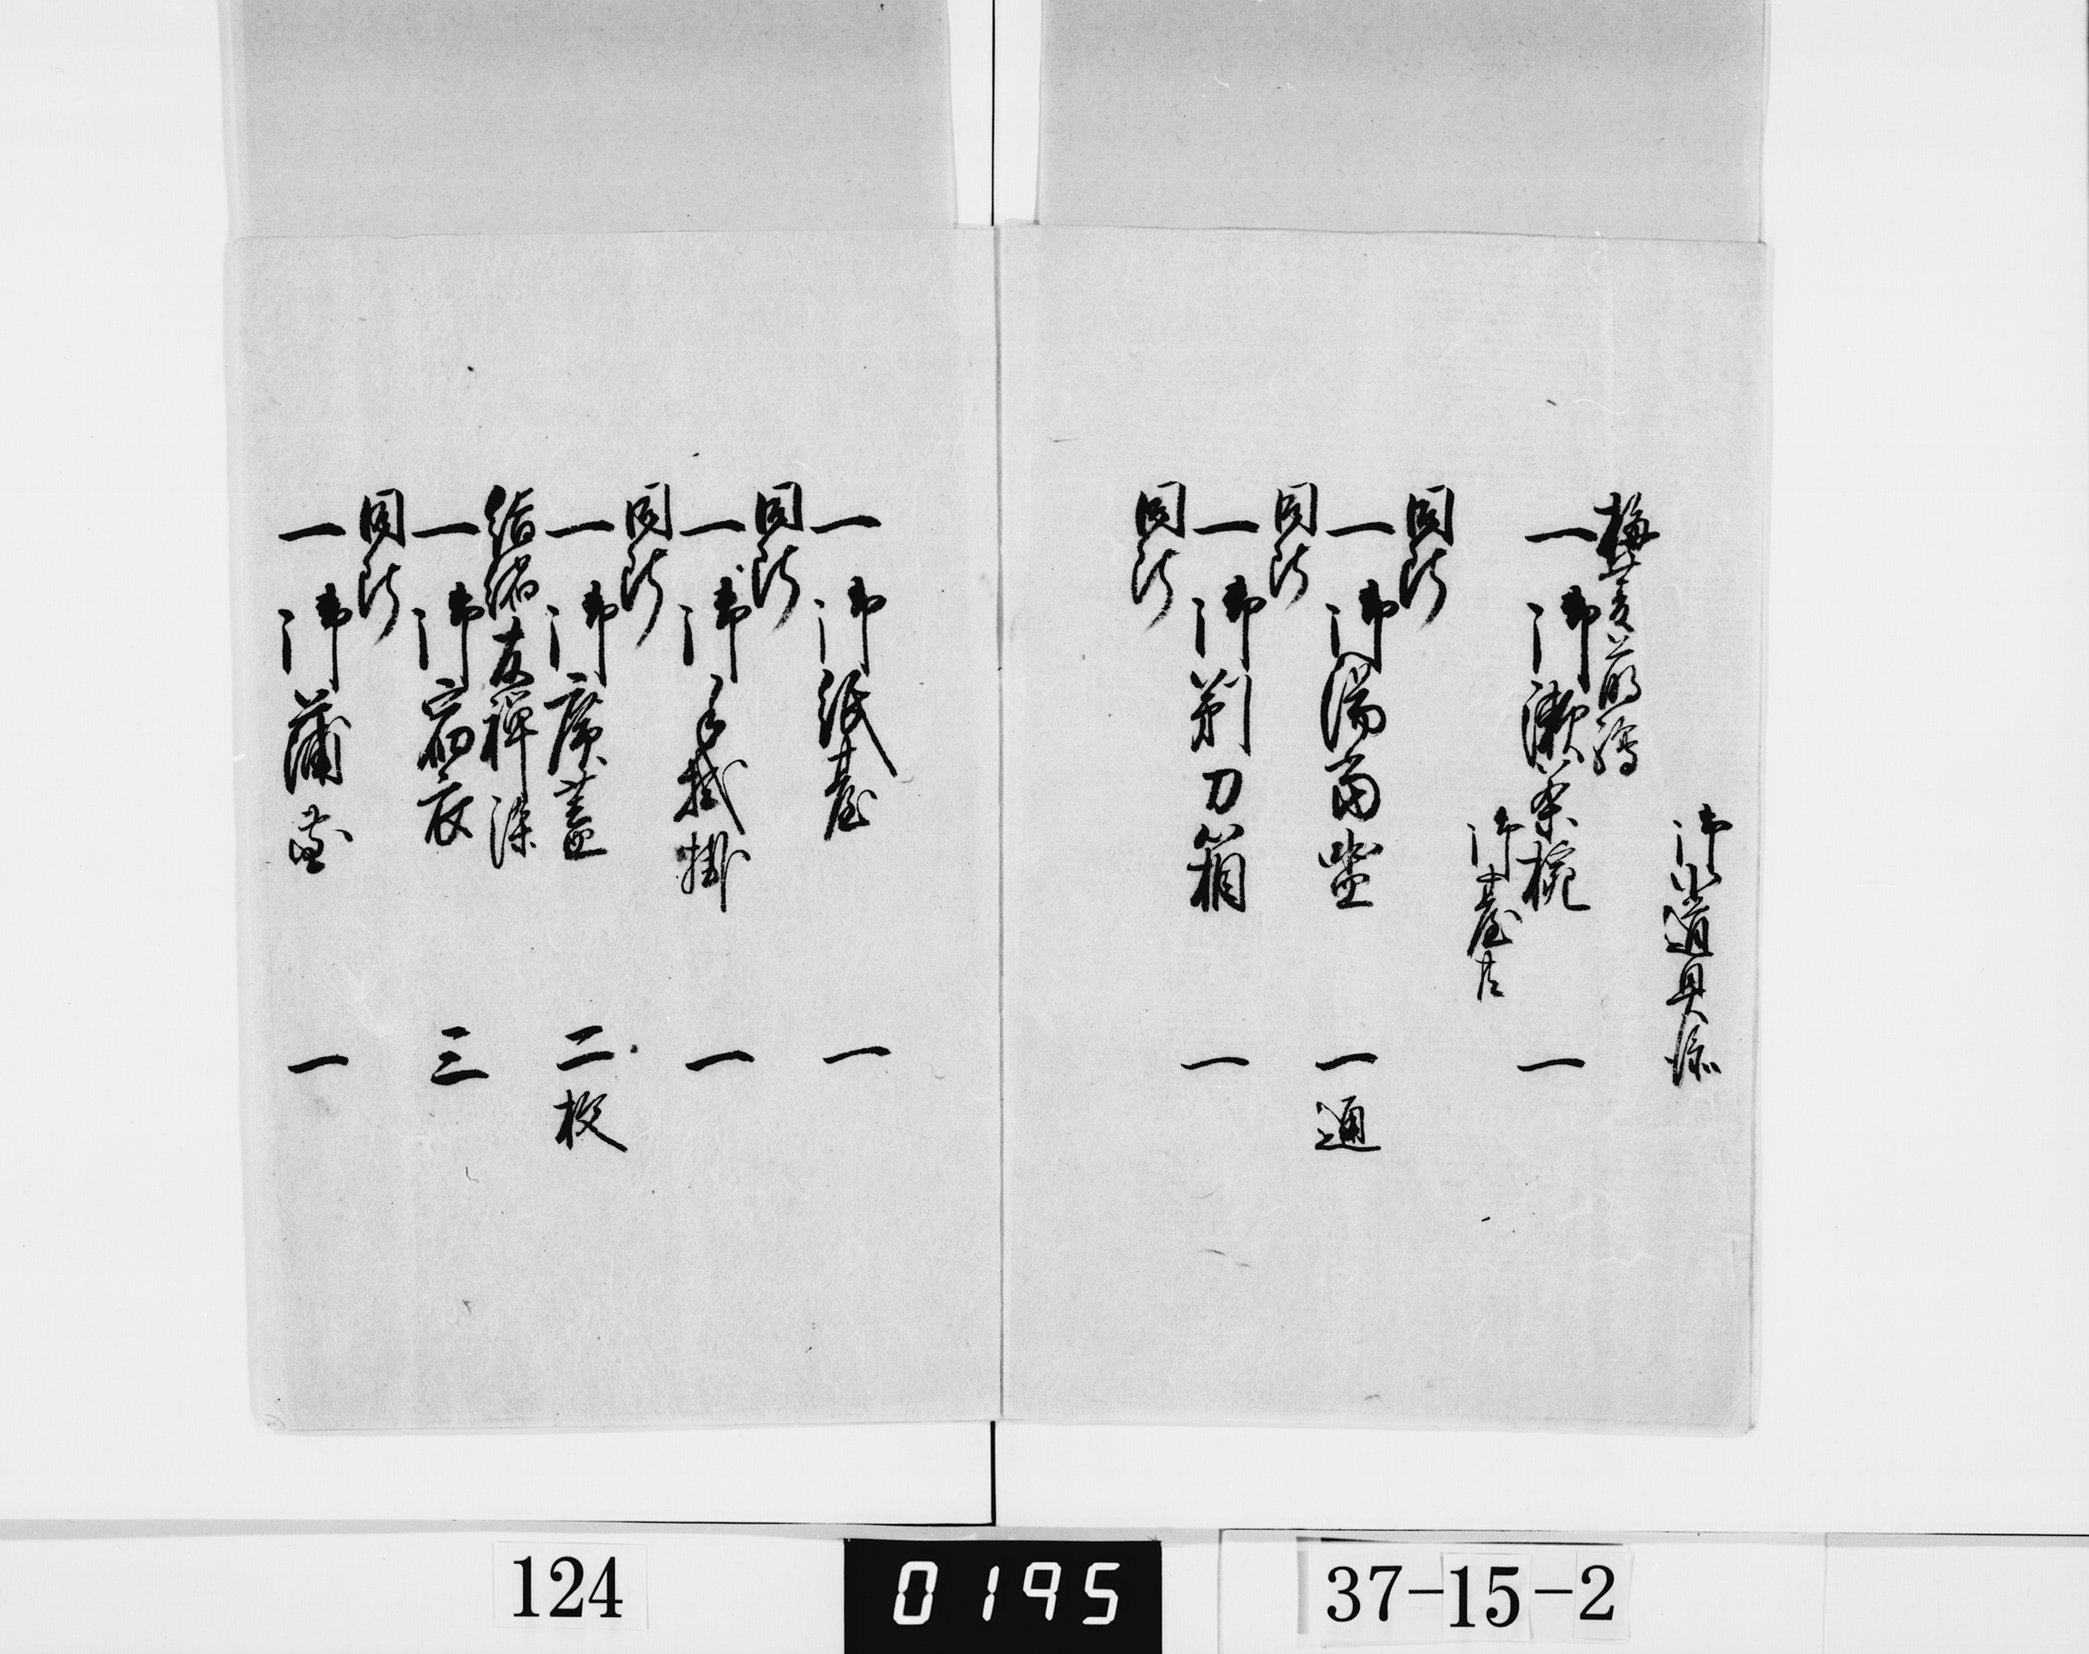 御小道具添
梅菱蒔繪
一 御漱茶椀 一
御臺共
同断
一 御湯当盥 一通
同断
一 御剃刀箱 一
同断
一 御紙臺 一
同断
一 御手拭掛 一
同断
一 御廣蓋 二枚
縮緬友禅染
一 御宿衣 三
同断
一 御蒲団 一
124
0195
37-15-2